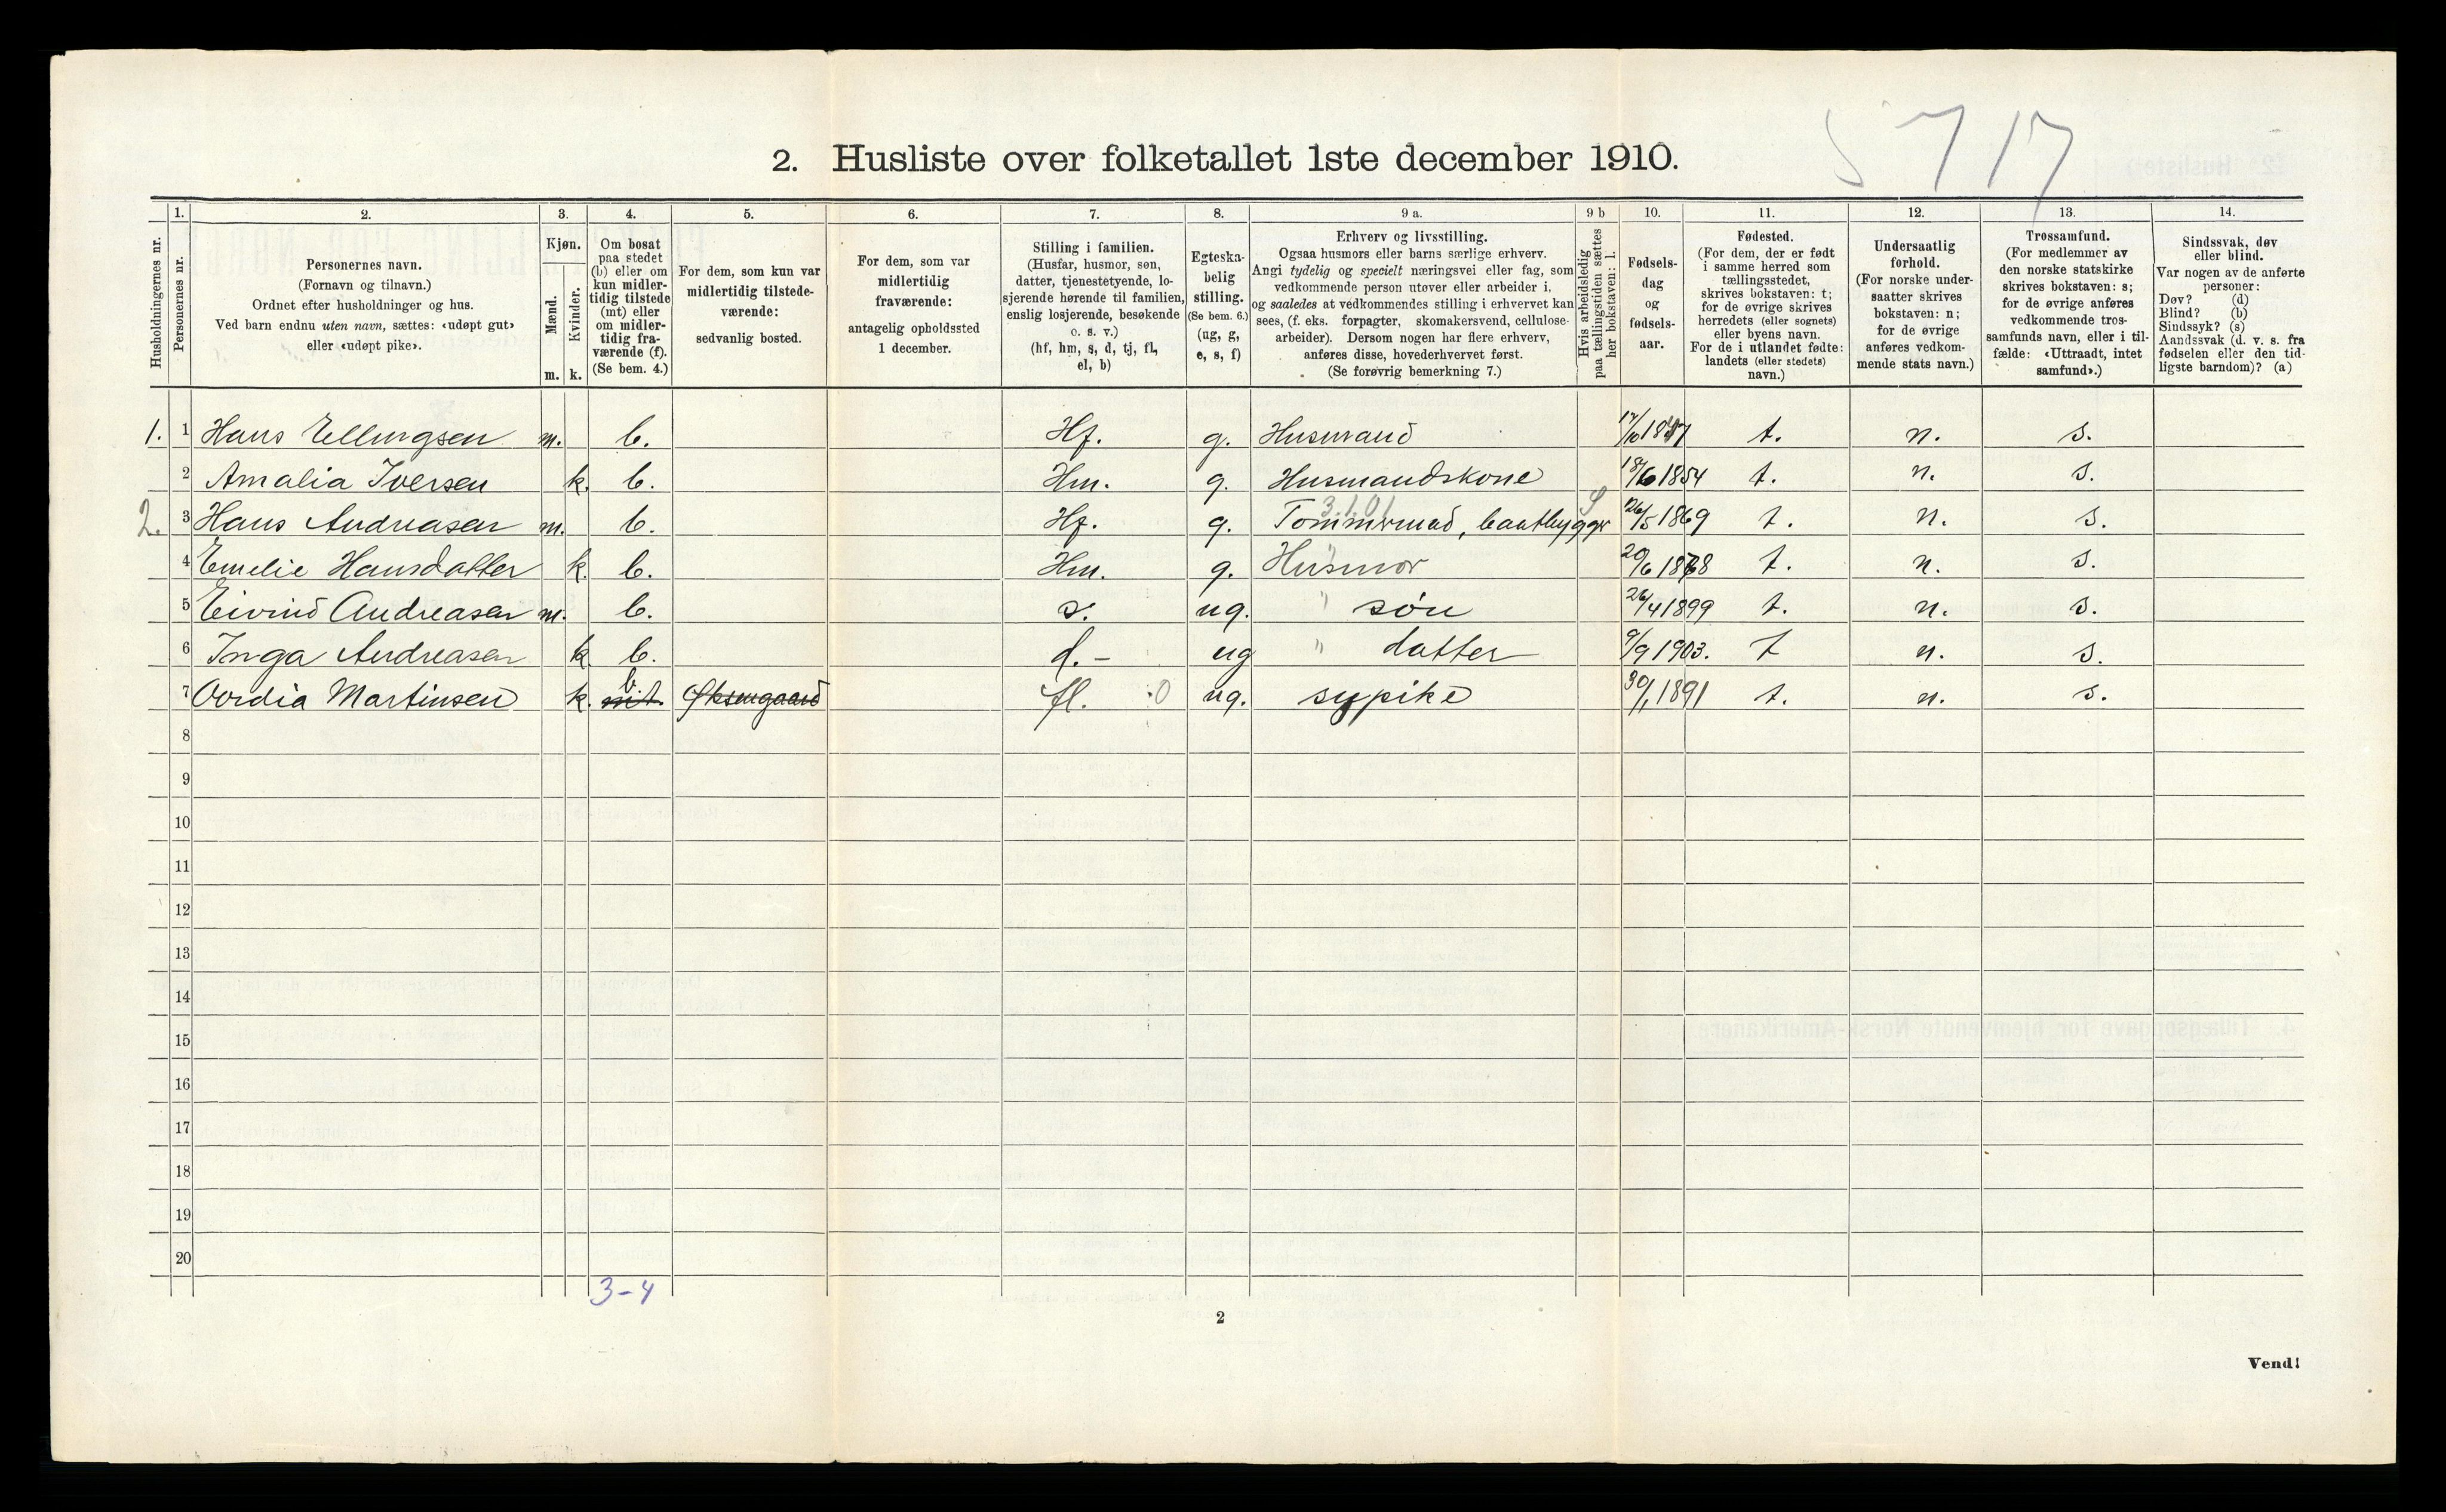 5 7 17
2. Husliste over folketallet 1ste december 1910.
Husholdningernes nr.
1.
Personernes nr.
2.
Personernes navn.
(Fornavn og tilnavn.)
Ordnet efter husholdninger og hus.
Ved barn endnu uten navn, sættes: «udøpt gut»
eller «udøpt pike».
3.
Kjøn.
Mænd.
Kvinder.
m. k.
4.
Om bosat
paa stedet
(b) eller om
kun midler-
tidig tilstede
(mt) eller
om midler-
tidig fra-
værende (f).
(Se bem. 4.)
5.
For dem, som kun var
midlertidig tilstede-
værende:
sedvanlig bosted.
6.
For dem, som var
midlertidig
fraværende:
antagelig opholdssted
1 december.
7.
Stilling i familien.
(Husfar, husmor, søn,
datter, tjenestetyende, lo-
sjerende hørende til familien,
enslig losjerende, besøkende
o. s. v.)
(hf, hm, s, d, tj, fl,
el, b)
8.
Egteska-
belig
stilling.
(Se bem. 6.)
(ug, g,
e, s, f)
9 a.
Erhverv og livsstilling.
Ogsaa husmors eller barns særlige erhverv.
Angi tydelig og specielt næringsvei eller fag, som
vedkommende person utøver eller arbeider i,
og saaledes at vedkommendes stilling i erhvervet kan
sees, (f. eks. forpagter, skomakersvend, cellulose-
arbeider). Dersom nogen har flere erhverv,
anføres disse, hovederhvervet først.
(Se forøvrig bemerkning 7.)
9 b
Hvis arbeidsledig
paa tællingstiden sættes
her bokstaven: l.
10.
Fødsels-
dag
og
fødsels-
aar.
11.
Fødested.
(For dem, der er født
i samme herred som
tællingsstedet,
skrives bokstaven: t;
for de øvrige skrives
herredets (eller sognets)
eller byens navn.
For de i utlandet fødte:
landets (eller stedets)
navn.)
12.
Undersaatlig
forhold.
(For norske under-
saatter skrives
bokstaven: n;
for de øvrige
anføres vedkom-
mende stats navn.)
13.
Trossamfund.
(For medlemmer av
den norske statskirke
skrives bokstaven: s;
for de øvrige anføres
vedkommende tros-
samfunds navn, eller i til-
fælde: «Uttraadt, intet
samfund».)
14.
Sindssvak, døv
eller blind.
Var nogen av de anførte
personer:
Døv? (d)
Blind? (b)
Sindssyk? (s)
Aandssvak (d. v. s. fra
fødselen eller den tid-
ligste barndom)? (a)
1. 1 Hans Ellingsen m. b. Hf. g. Husmand 17/10 1847 t. n. s.
2 Amalia Iversen k. b. Hm. g. Husmandskone 18/6 1854 t. n. s.
3.1.01
2. 3 Hans Andreasen m. b. Hf. g. Tømmermad, baatbygger 26/5 1869 t. n. s.
4 Emelie Hansdatter k. b. Hm. g. Husmor 20/6 1868 t. n. s.
5 Eivind Andreasen m. b. s. ug. " søn 26/4 1899 t. n. s.
6 Inga Andreasen k b. d. - ug " datter 9/9 1903. t n. s.
7 Oordia Martinsen k. b. mt. Øksengaard fl. 0 ug. sypike 30/1 1891 t. n. s.
8
9
10
11
12
13
14
15
16
17
18
19
20
3-4
2
Vend!